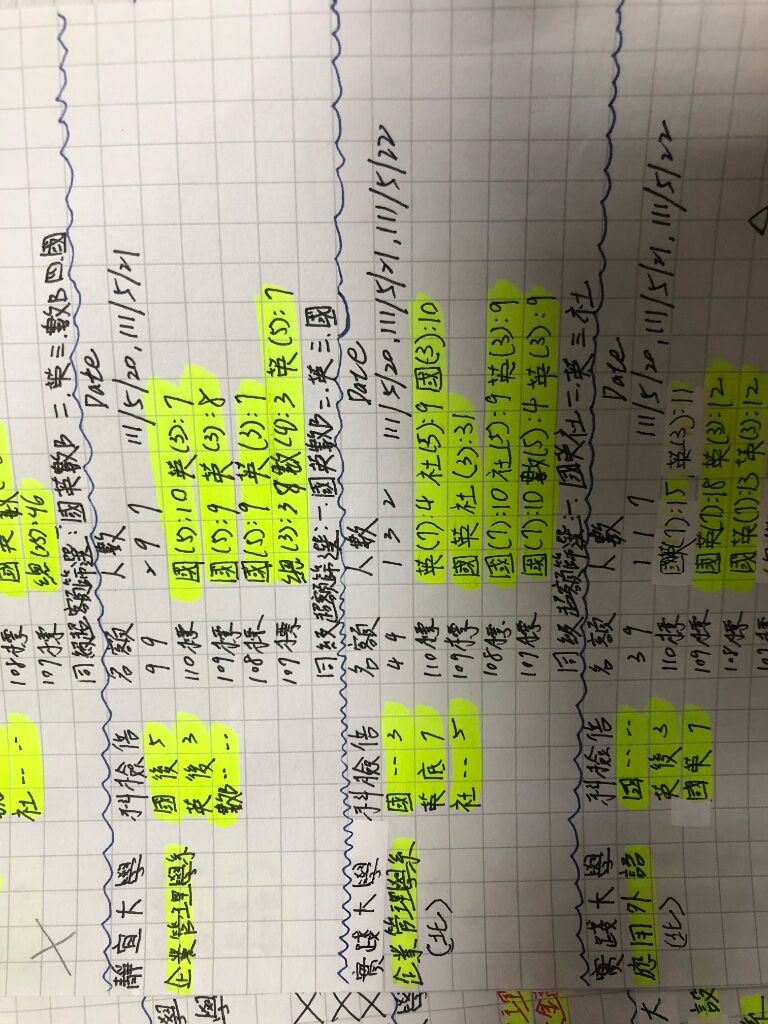 社 -- --
國英數
總(25):46
108標
107標
同級超額篩選:國英數B 二.英 三.數B 四.國
靜宜大學 科檢倍 名額 人數 Date
企業管理學系 國後5 9 9 297 111/5/20, 111/5/21
英後3 110標 國(5):10 英(3):7
數-- -- 109標 國(5):9 英(3):8
108標 國(5):9 英(3):7
107標 總(3):38 數(4):3 英(5):7
同級超額篩選:一.國英數B 二.英 三.國
實踐大學 科檢倍 名額 人數 Date
企業管理學系 國--3 4 9 132 111/5/20, 111/5/21, 111/5/22
(北) 英底7 110標 英(7):4 社(5):9 國(3):10
社--5 109標 國英社(3):31
108標 國(7):10 社(5):9 英(3):9
107標 國(7):10 數(5):4 英(3):9
同級超額篩選:一.國英社 二.英 三.社
實踐大學 科檢倍 名額 人數 Date
應用外語 國-- -- 3 9 117 111/5/20, 111/5/21, 111/5/22
(北) 英後3 110標 國英(7):15 英(3):11
國英7 109標 國英(7):15 英(3):12
108標 國英(7):13 英(3):12
107標